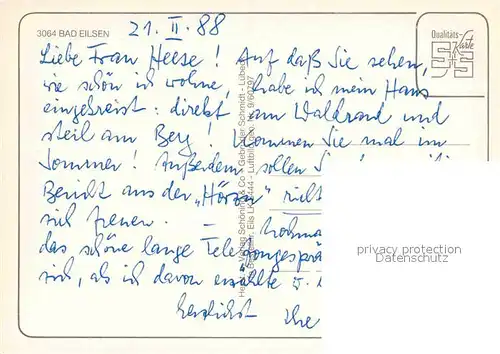 3064 BAD EILSEN
21. II. 88
Qualitäts-
Karte
Liebe Frau Heese! Auf daß Sie sehen,
wie schön ich wohne, habe ich mein Haus
eingekreist: direkt am Waldrand und
steil am Berg! Kommen Sie mal im
Sommer! Außerdem sollen S
Bericht aus der „Hörzu"
sich freuen. –
das schöne lange Telefongesprä
als ich davon erzählte
herzlichst Ihre
privacy protection
Datenschutz